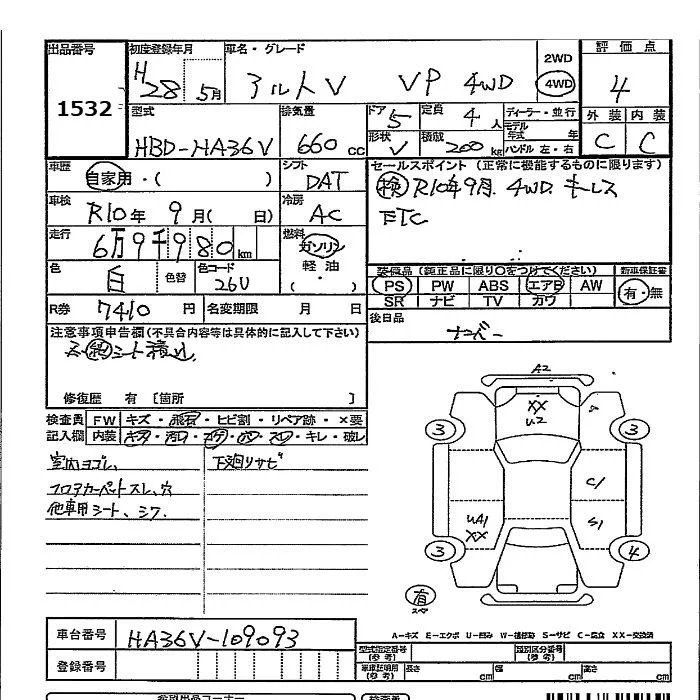 出品番号 初度登録年月 車名・グレード 評価点
1532 H28 5月 アルトV VP 4WD 2WD 4WD 4
外装 内装
C C
型式 排気量 ドア 5 定員 4人 ディーラー・並行
モデル年式 年
HBD-HA36V 660cc 形状 V 積載 200kg ハンドル 左・右
車歴 シフト セールスポイント(正常に機能するものに限ります)
自家用・( ) DAT 検 R10年9月. 4WD. キーレス
車検 冷房 ETC
R10年 9月( 日) AC
走行 燃料
6万9千980km ガソリン
軽油
( ・ )
色 白 色替 色コード 26U
装備品(純正品に限り○をつけてください) 新車保証書
PS PW ABS エアB AW 有・無
SR ナビ TV カワ
R券 7410円 名変期限 月 日
後日品
ナンバー
注意事項申告欄(不具合内容等は具体的に記入して下さい)
シート積込
修復歴 有 〔箇所 〕
検査員 FW キズ・飛石・ヒビ割・リペア跡・×要
記入欄 内装 キズ・汚レ・コゲ・穴・スレ・キレ・破レ
室内ヨゴレ、 下廻りサビ
フロアカーペットスレ、穴
他車用シート、シワ、
A2
XX
U2
3 3
C1
UA1 S1
XX
3 4
有
スペア
A-キズ E-エクボ U-凹み W-補修跡 S-サビ C-腐食 XX-交換済
車台番号 HA36V-109093
型式指定番号(参考) 類別区分番号(参考)
登録番号
車庫証明用(参考) 長さ cm 幅 cm 高さ cm